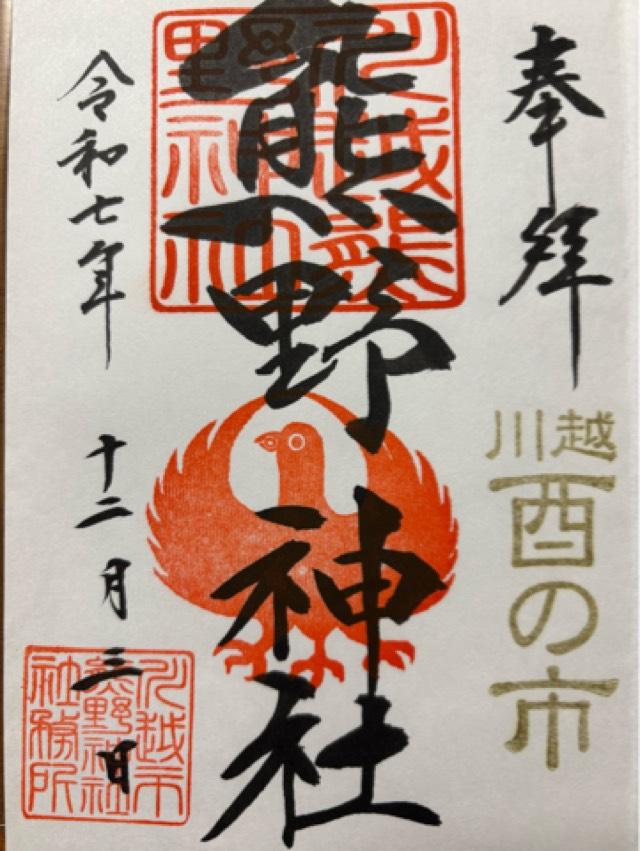 奉拝
川越
酉の市
熊野神社
川越熊野神社
令和七年
十二月三日
川越市熊野神社社務所